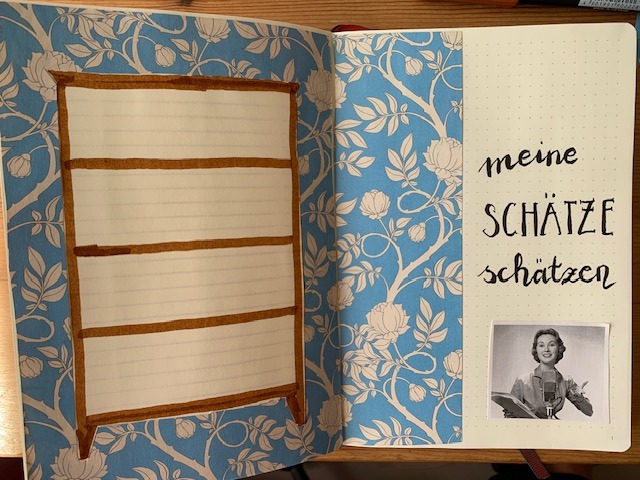 meine
SCHÄTZE
schätzen